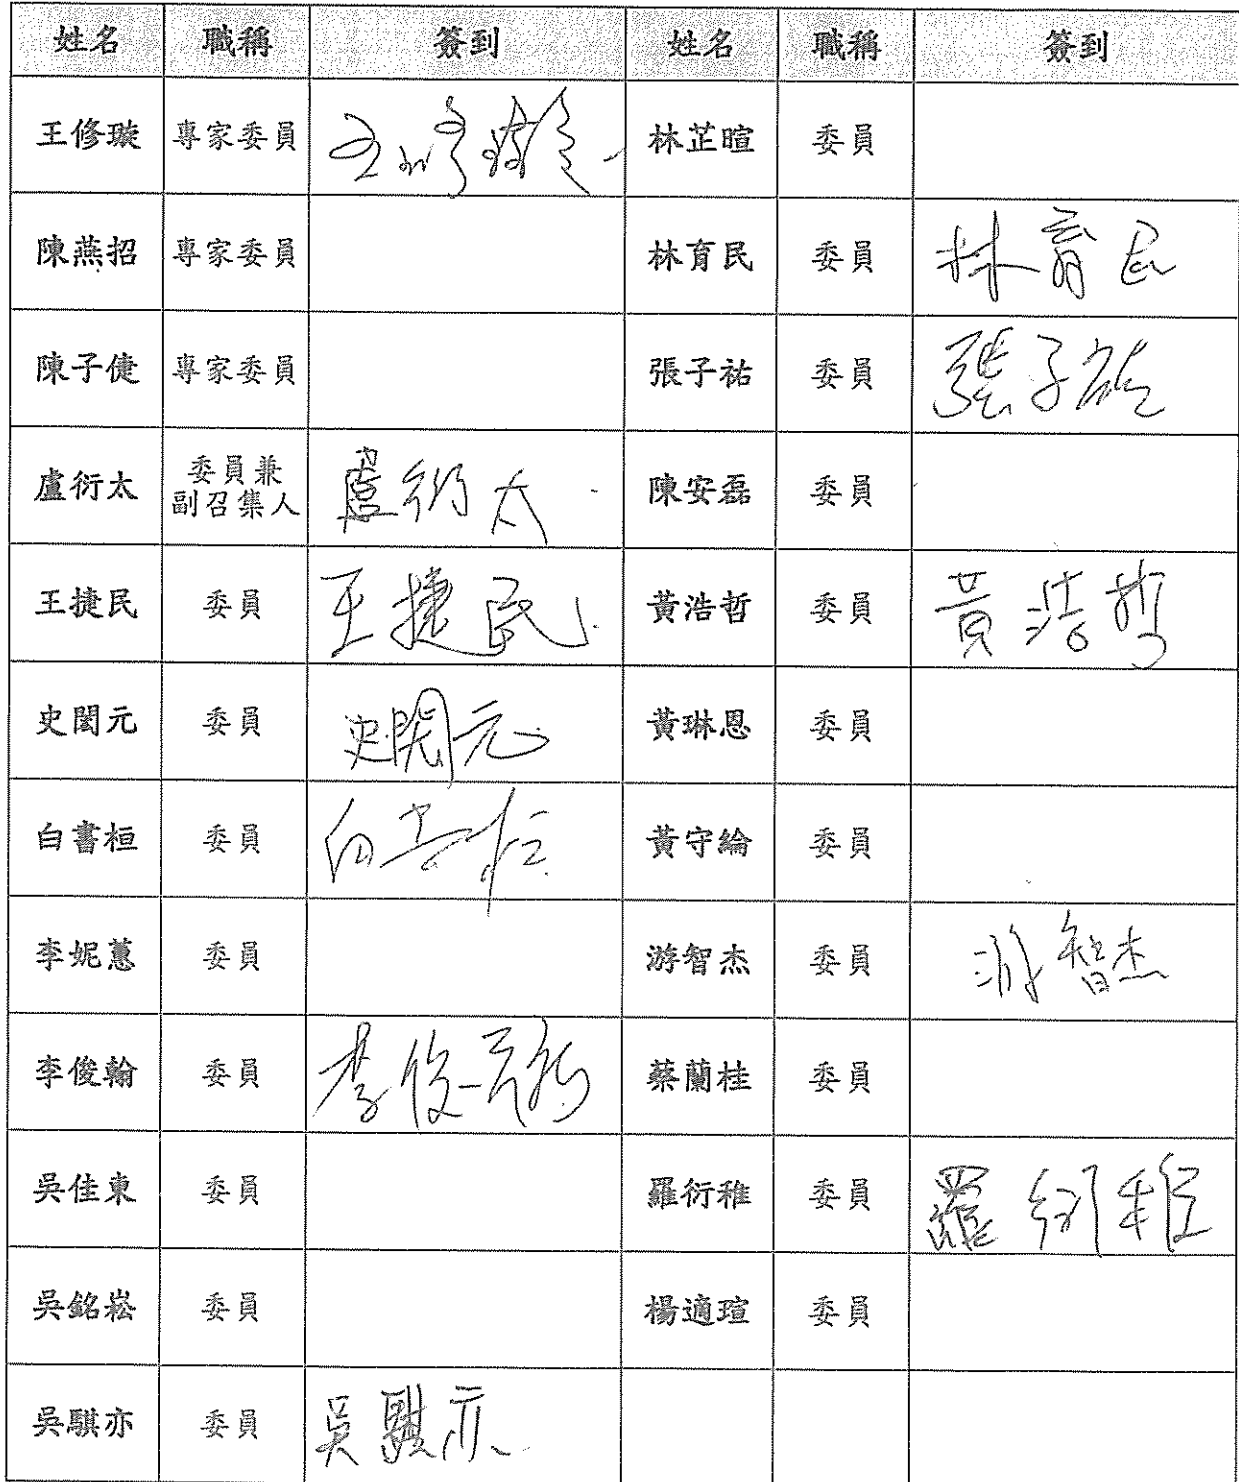 姓名 職稱 簽到 姓名 職稱 簽到
王修璇 專家委員 王修璇 林芷暄 委員
陳燕招 專家委員 林育民 委員 林育民
陳子倢 專家委員 張子祐 委員 張子祐
盧衍太 委員兼副召集人 盧衍太 陳安磊 委員
王捷民 委員 王捷民 黃浩哲 委員 黃浩哲
史閎元 委員 史閎元 黃琳恩 委員
白書桓 委員 白書桓 黃守綸 委員
李妮蕙 委員 游智杰 委員 游智杰
李俊翰 委員 李俊翰 蔡蘭桂 委員
吳佳東 委員 羅衍稚 委員 羅衍稚
吳銘崧 委員 楊適瑄 委員
吳騏亦 委員 吳騏亦